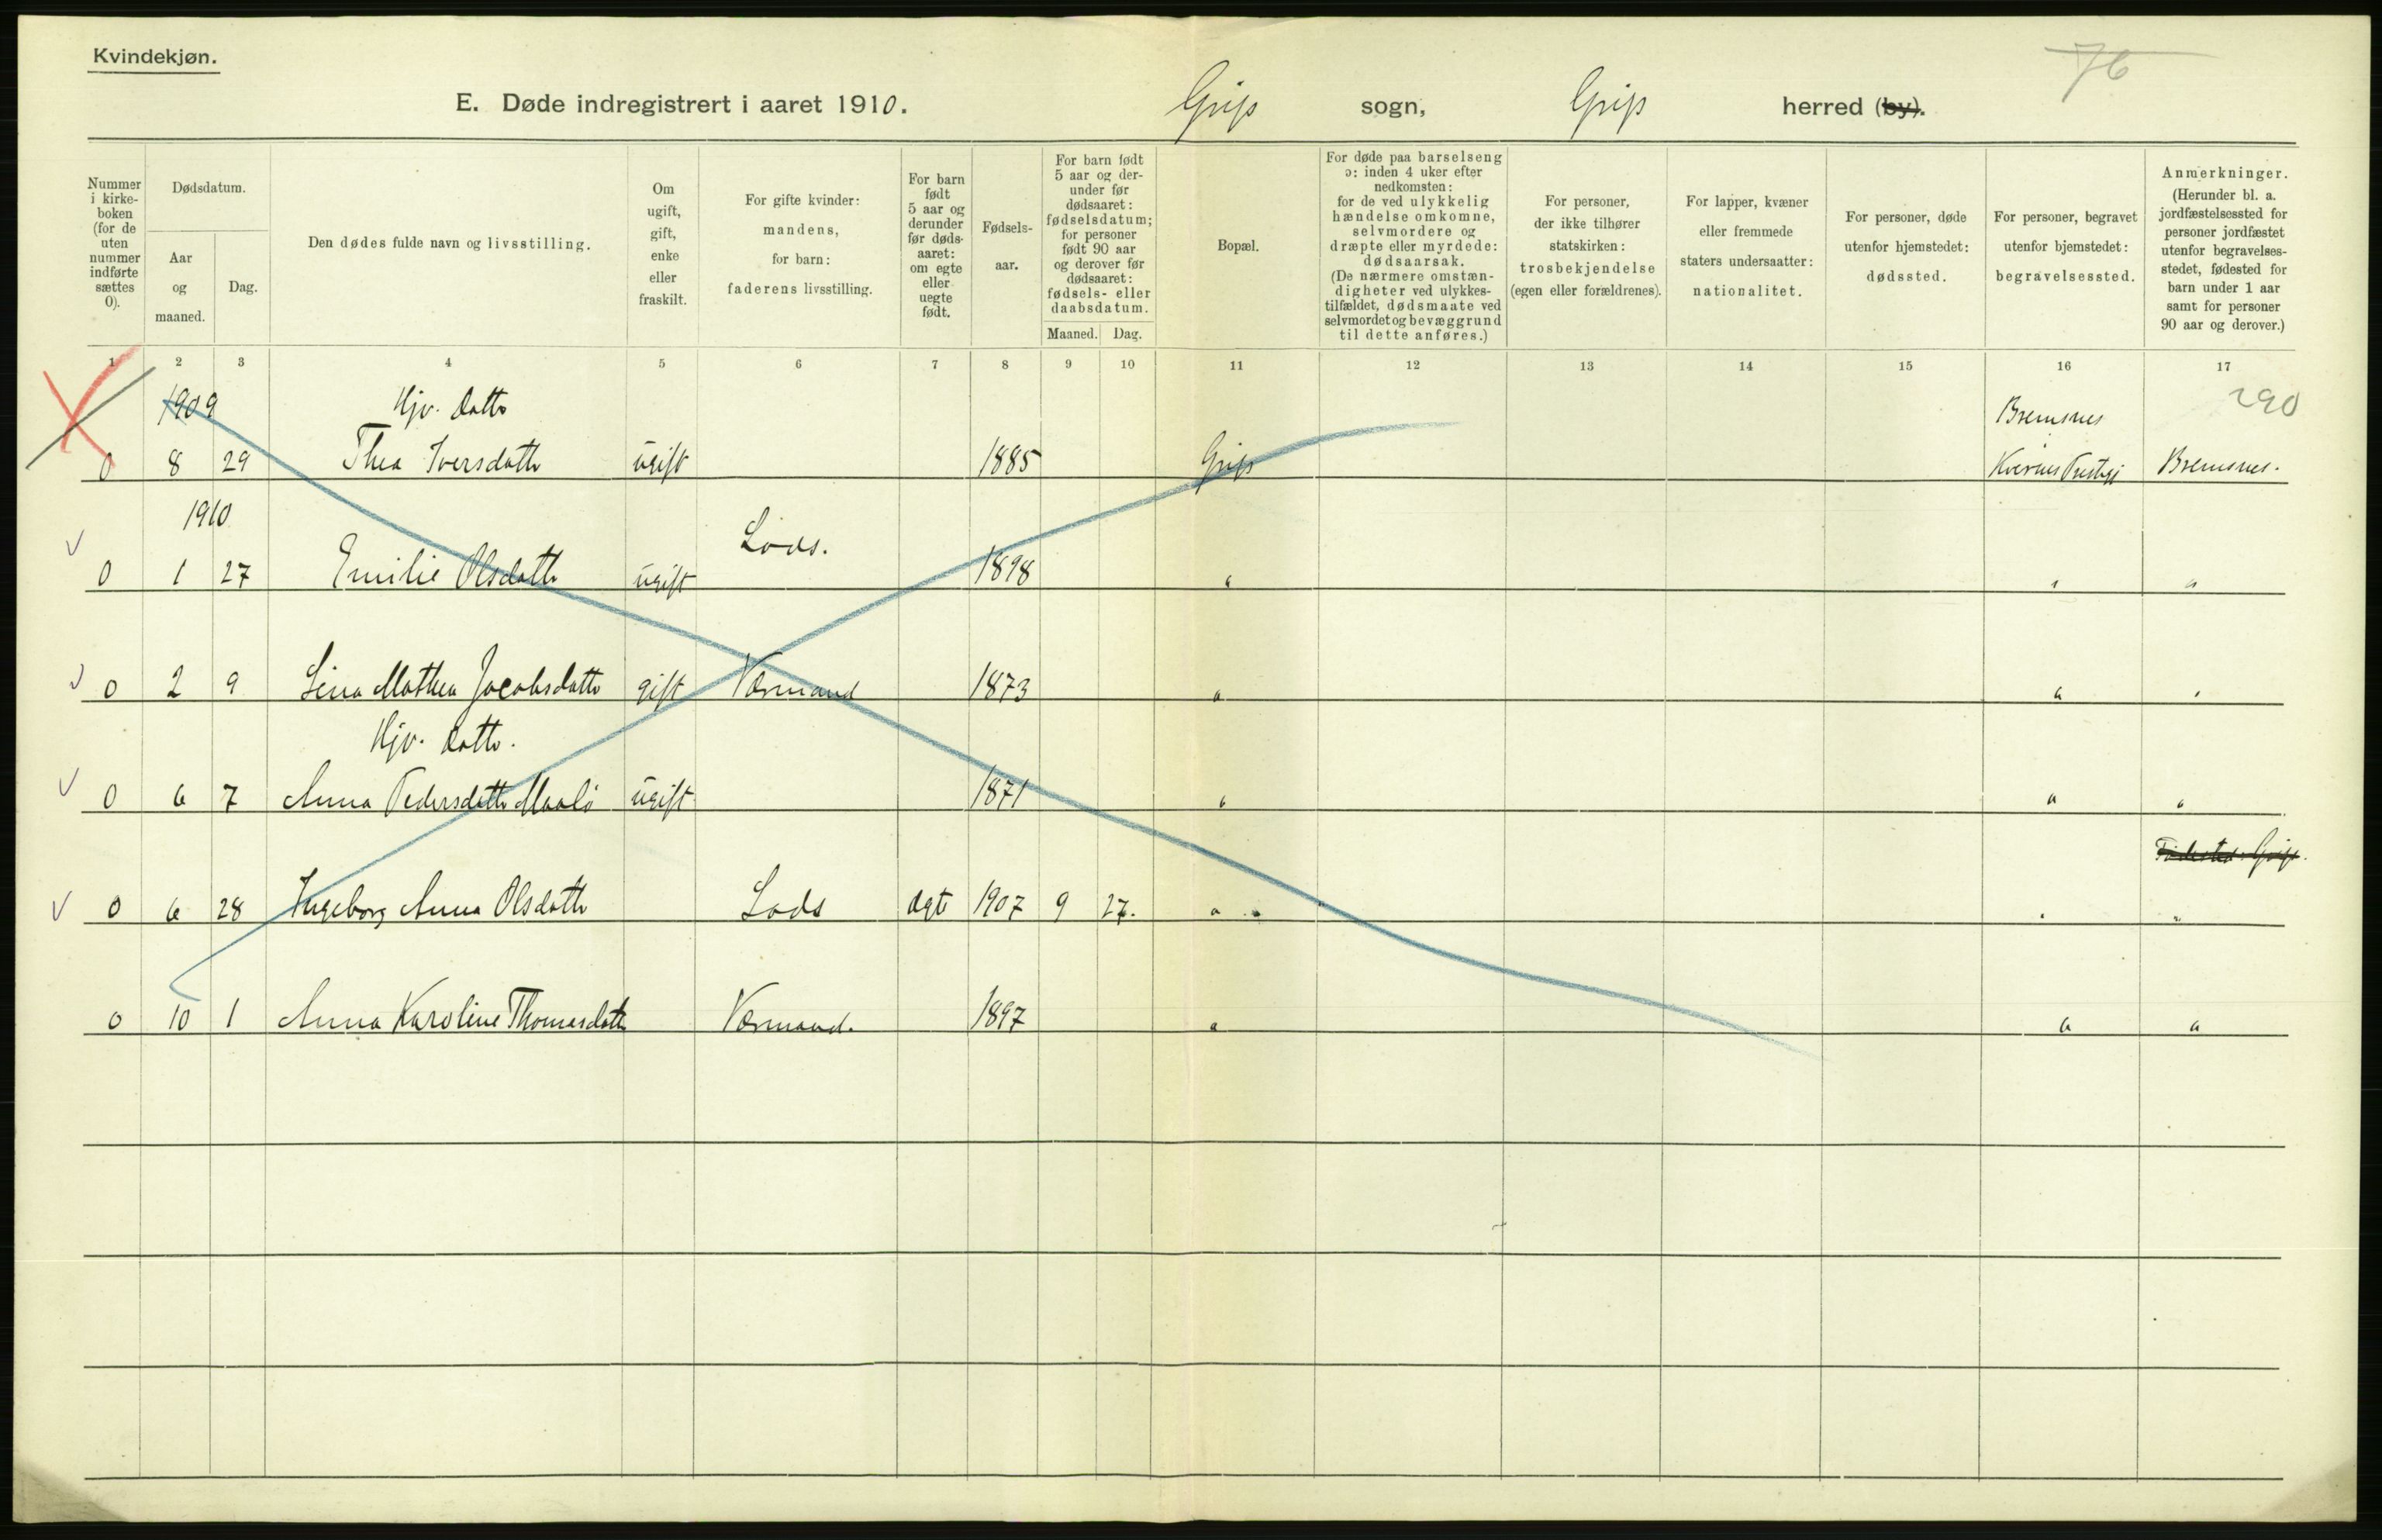 Kvindekjøn.
76
E. Døde indregistrert i aaret 1910. Grip sogn, Grip herred (by).
Nummer i kirke-boken (for de uten nummer indførte sættes 0).
Dødsdatum.
Aar og maaned.
Dag.
Den dødes fulde navn og livsstilling.
Om ugift, gift, enke eller fraskilt.
For gifte kvinder: mandens, for barn: faderens livsstilling.
For barn født 5 aar og derunder før døds-aaret: om egte eller uegte født.
Fødsels-aar.
For barn født 5 aar og der-under før dødsaaret: fødselsdatum; for personer født 90 aar og derover før dødsaaret: fødsels- eller daabsdatum.
Maaned. Dag.
Bopæl.
For døde paa barselseng ɔ: inden 4 uker efter nedkomsten: for de ved ulykkelig hændelse omkomne, selvmordere og dræpte eller myrdede: dødsaarsak. (De nærmere omstæn-digheter ved ulykkes-tilfældet, dødsmaate ved selvmordet og bevæggrund til dette anføres.)
For personer, der ikke tilhører statskirken: trosbekjendelse (egen eller forældrenes).
For lapper, kvæner eller fremmede staters undersaatter: nationalitet.
For personer, døde utenfor hjemstedet: dødssted.
For personer, begravet utenfor hjemstedet: begravelsessted.
Anmerkninger. (Herunder bl. a. jordfæstelsessted for personer jordfæstet utenfor begravelses-stedet, fødested for barn under 1 aar samt for personer 90 aar og derover.)
1 2 3 4 5 6 7 8 9 10 11 12 13 14 15 16 17
1909 Hjv. datte Bremsnes 290
0 8 29 Thea Iversdatte ugift 1885 Grip Kvernes Prestgj Bremsnes.
1910 Lods.
0 1 27 Emilie Olsdatte ugift 1898 " " "
0 2 9 Lina Mathea Jacobsdatte gift Værmand 1873 " " "
Hjv. datte.
0 6 7 Anna Pedersdatte Maalø ugift 1871 " " "
Fødested: Grip.
0 6 28 Ingeborg Anna Olsdatte Lods ægt 1907 9 27. " " "
0 10 1 Anna Karoline Thomasdatte Værmand. 1897 " " "